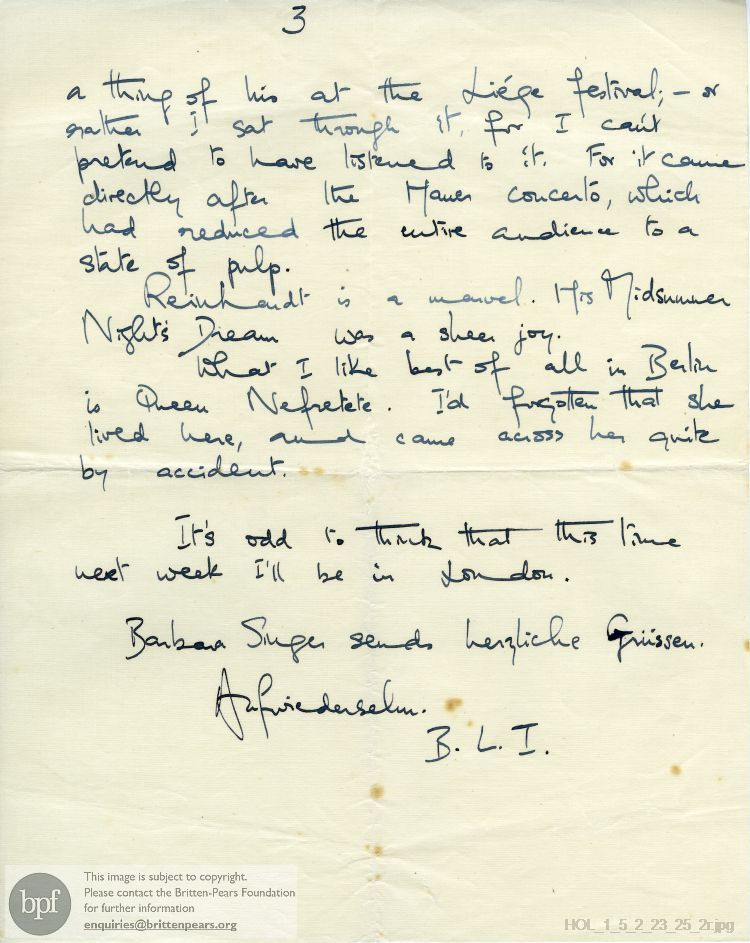 3
a thing of his at the Liége festival; – or
rather I sat through it, for I can't
pretend to have listened to it. For it came
directly after the Mauer concerto, which
had reduced the entire audience to a
state of pulp.
Reinhardt is a marvel. His Midsummer
Night's Dream was a sheer joy.
What I like best of all in Berlin
is Queen Nefretete. I'd forgotten that she
lived here, and came across her quite
by accident.
It's odd to think that this time
next week I'll be in London.
Barbara Singer sends herzliche Grüssen.
Aufwiedersehn.
B. L. I.
bpf
This image is subject to copyright.
Please contact the Britten-Pears Foundation
for further information
enquiries@brittenpears.org
HOL_1_5_2_23_25_2r.jpg